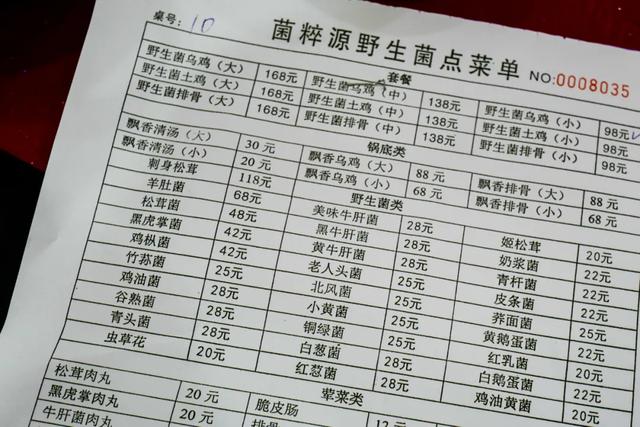 桌号: 10
菌粹源野生菌点菜单 NO:0008035
套餐
野生菌乌鸡（大） 168元 野生菌乌鸡（中） 138元 野生菌乌鸡（小） 98元
野生菌土鸡（大） 168元 野生菌土鸡（中） 138元 野生菌土鸡（小） 98元
野生菌排骨（大） 168元 野生菌排骨（中） 138元 野生菌排骨（小） 98元
锅底类
飘香清汤（大） 30元 飘香乌鸡（大） 88元 飘香排骨（大） 88元
飘香清汤（小） 20元 飘香乌鸡（小） 68元 飘香排骨（小） 68元
刺身松茸 118元 野生菌类
羊肚菌 68元 美味牛肝菌 28元 姬松茸 20元
松茸菌 48元 黑牛肝菌 28元 奶浆菌 22元
黑虎掌菌 42元 黄牛肝菌 28元 青杆菌 22元
鸡枞菌 42元 老人头菌 25元 皮条菌 22元
竹荪菌 25元 北风菌 25元 荞面菌 25元
鸡油菌 28元 小黄菌 25元 黄鹅蛋菌 22元
谷熟菌 28元 铜绿菌 25元 红乳菌 20元
青头菌 28元 白葱菌 28元 白鹅蛋菌 22元
虫草花 20元 红葱菌 28元 鸡油黄菌 20元
荤菜类
松茸肉丸 20元 脆皮肠 12元
黑虎掌肉丸 20元 排骨
牛肝菌肉丸